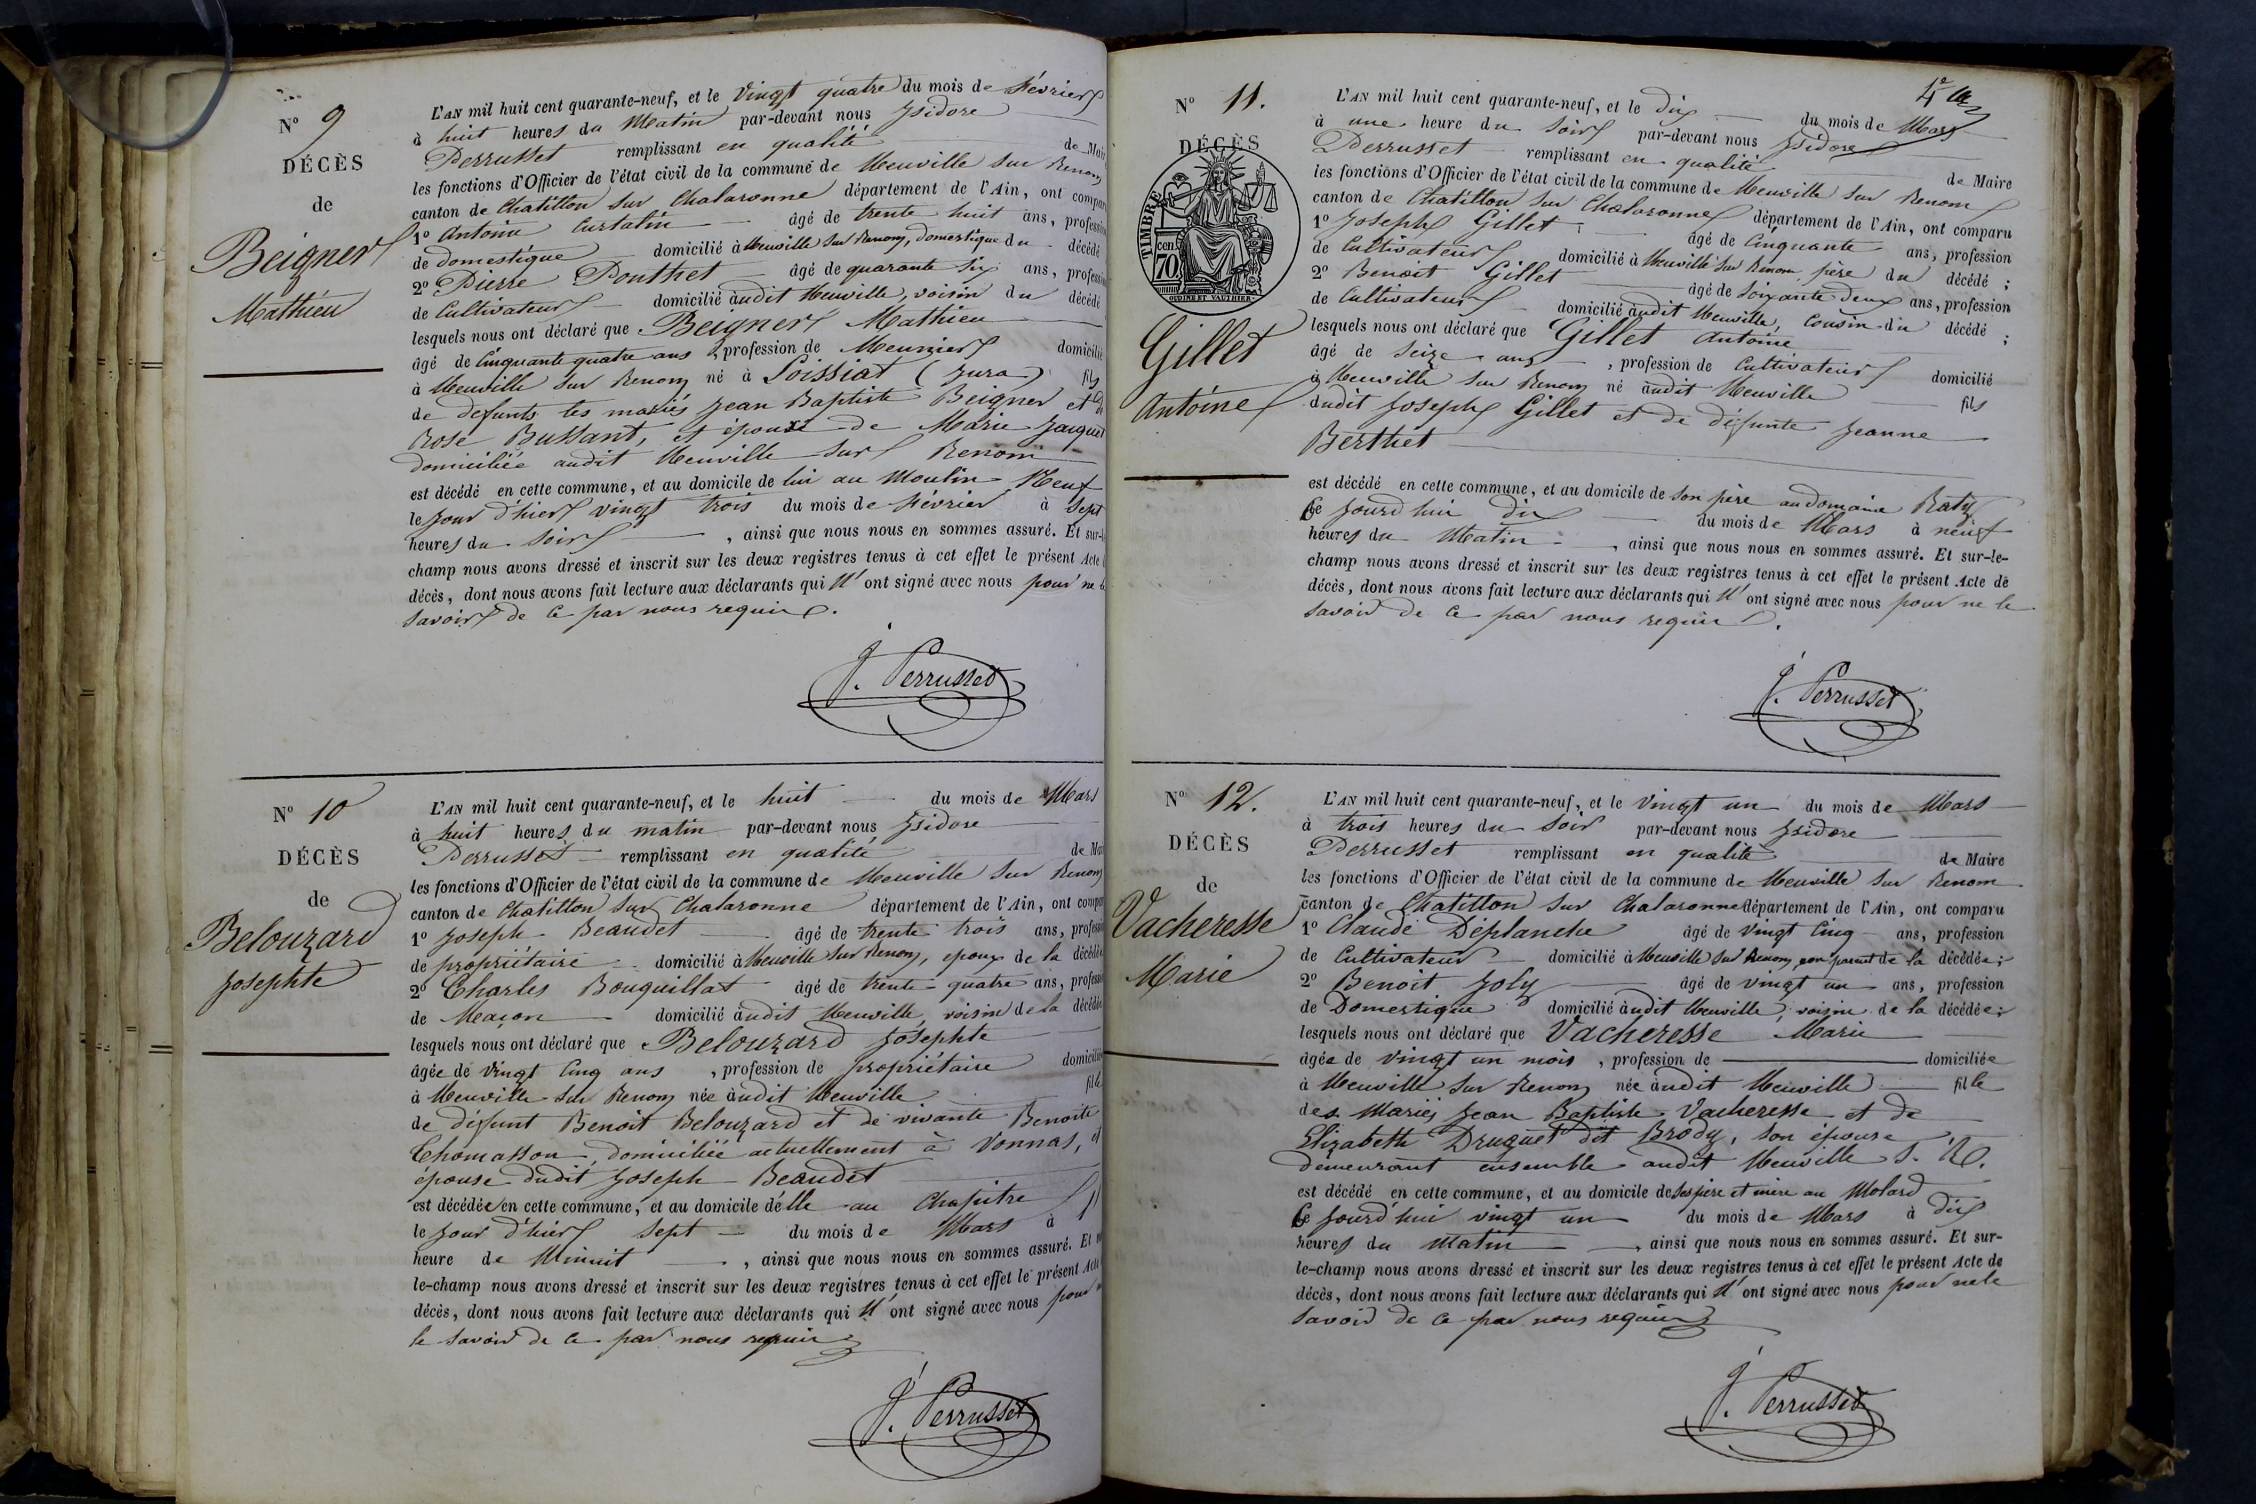 N° 9
DÉCÈS
de
Beigner
Mathieu
L'AN mil huit cent quarante-neuf, et le vingt quatre du mois de Février
à huit heures du Matin par-devant nous Isidore
Perrusset remplissant en qualité de Mai
les fonctions d'Officier de l'état civil de la commune de Neuville sur Renom
canton de Chatillon sur Chalaronne département de l'Ain, ont compa
1° Antoine Curtatin âgé de trente huit ans, profession
de domestique domicilié à Neuville sur Renom, domestique du décédé
2° Pierre Ponthet âgé de quarante six ans, profession
de Cultivateur domicilié audit Neuville, voisin du décédé
lesquels nous ont déclaré que Beigner Mathieu
âgé de Cinquante quatre ans, profession de Meunier domicilié
à Neuville sur Renom né à Loissiat (Jura) fils
de defunts les mariés Jean Baptiste Beigner et de
Rose Bussant, et époux de Marie Jacquet
domiciliée audit Neuville sur Renom
est décédé en cette commune, et au domicile de lui au Moulin Neuf
le jour d'hier vingt trois du mois de Février à sept
heures du soir, ainsi que nous nous en sommes assuré. Et sur-l
champ nous avons dressé et inscrit sur les deux registres tenus à cet effet le présent Acte
décès, dont nous avons fait lecture aux déclarants qui n'ont signé avec nous pour ne le
savoir de ce par nous requis.
J. Perrusset
N° 10
DÉCÈS
de
Belouzard
Josephte
L'AN mil huit cent quarante-neuf, et le huit du mois de Mars
à huit heures du matin par-devant nous Isidore
Perrusset remplissant en qualité de Mai
les fonctions d'Officier de l'état civil de la commune de Neuville sur Renom
canton de Chatillon sur Chalaronne département de l'Ain, ont compa
1° Joseph Beaudet âgé de trente trois ans, profess
de propriétaire domicilié à Neuville sur Renom, époux de la décédée
2° Charles Bouquillat âgé de trente quatre ans, profess
de Maçon domicilié audit Neuville, voisin de la décédée
lesquels nous ont déclaré que Belouzard Josephte
âgée de vingt cinq ans, profession de propriétaire domicilié
à Neuville sur Renom née audit Neuville fille
de défunt Benoit Belouzard et de vivante Benoite
Thomasson, domiciliée actuellement à Vonnas, et
épouse dudit Joseph Beaudet
est décédée en cette commune, et au domicile d'elle au Chapitre
le jour d'hier sept du mois de Mars à
heure de Minuit, ainsi que nous nous en sommes assuré. Et
le-champ nous avons dressé et inscrit sur les deux registres tenus à cet effet le présent Acte
décès, dont nous avons fait lecture aux déclarants qui n'ont signé avec nous pour n
le savoir de ce par nous requis
J. Perrusset
4e
N° 11.
DÉCÈS
TIMBRE
70 cen.
OUDINE ET VAUTHIER
Gillet
Antoine
L'AN mil huit cent quarante-neuf, et le dix du mois de Mars
à une heure du soir par-devant nous Isidore
Perrusset remplissant en qualité de Maire
les fonctions d'Officier de l'état civil de la commune de Neuville sur Renom
canton de Chatillon sur Chalaronne département de l'Ain, ont comparu
1° Joseph Gillet âgé de Cinquante ans, profession
de Cultivateur domicilié à Neuville sur Renom père du décédé;
2° Benoit Gillet âgé de soixante deux ans, profession
de Cultivateur domicilié audit Neuville, Cousin du décédé;
lesquels nous ont déclaré que Gillet Antoine
âgé de seize ans, profession de Cultivateur domicilié
à Neuville sur Renom né audit Neuville fils
dudit Joseph Gillet et de défunte Jeanne
Berthet
est décédé en cette commune, et au domicile de son père au domaine Raty
Ce jourd'hui dix du mois de Mars à neuf
heures du Matin, ainsi que nous nous en sommes assuré. Et sur-le-
champ nous avons dressé et inscrit sur les deux registres tenus à cet effet le présent Acte de
décès, dont nous avons fait lecture aux déclarants qui n'ont signé avec nous pour ne le
savoir de ce par nous requis.
J. Perrusset
N° 12.
DÉCÈS
de
Vacheresse
Marie
L'AN mil huit cent quarante-neuf, et le vingt un du mois de Mars
à trois heures du soir par-devant nous Isidore
Perrusset remplissant en qualité de Maire
les fonctions d'Officier de l'état civil de la commune de Neuville sur Renom
canton de Chatillon sur Chalaronne département de l'Ain, ont comparu
1° Claude Déplanche âgé de vingt Cinq ans, profession
de Cultivateur domicilié à Neuville sur Renom, non parent de la décédée;
2° Benoit Joly âgé de vingt un ans, profession
de Domestique domicilié audit Neuville, voisin de la décédée;
lesquels nous ont déclaré que Vacheresse Marie
âgée de vingt un mois, profession de domiciliée
à Neuville sur Renom née audit Neuville fille
des Mariés Jean Baptiste Vacheresse et de
Elizabeth Druguet dit Brody, son épouse
demeurant ensemble audit Neuville S. R.
est décédé en cette commune, et au domicile de ses père et mère au Molard
Ce jourd'hui vingt un du mois de Mars à dix
heures du Matin, ainsi que nous nous en sommes assuré. Et sur-
le-champ nous avons dressé et inscrit sur les deux registres tenus à cet effet le présent Acte de
décès, dont nous avons fait lecture aux déclarants qui n'ont signé avec nous pour ne le
savoir de ce par nous requis
J. Perrusset